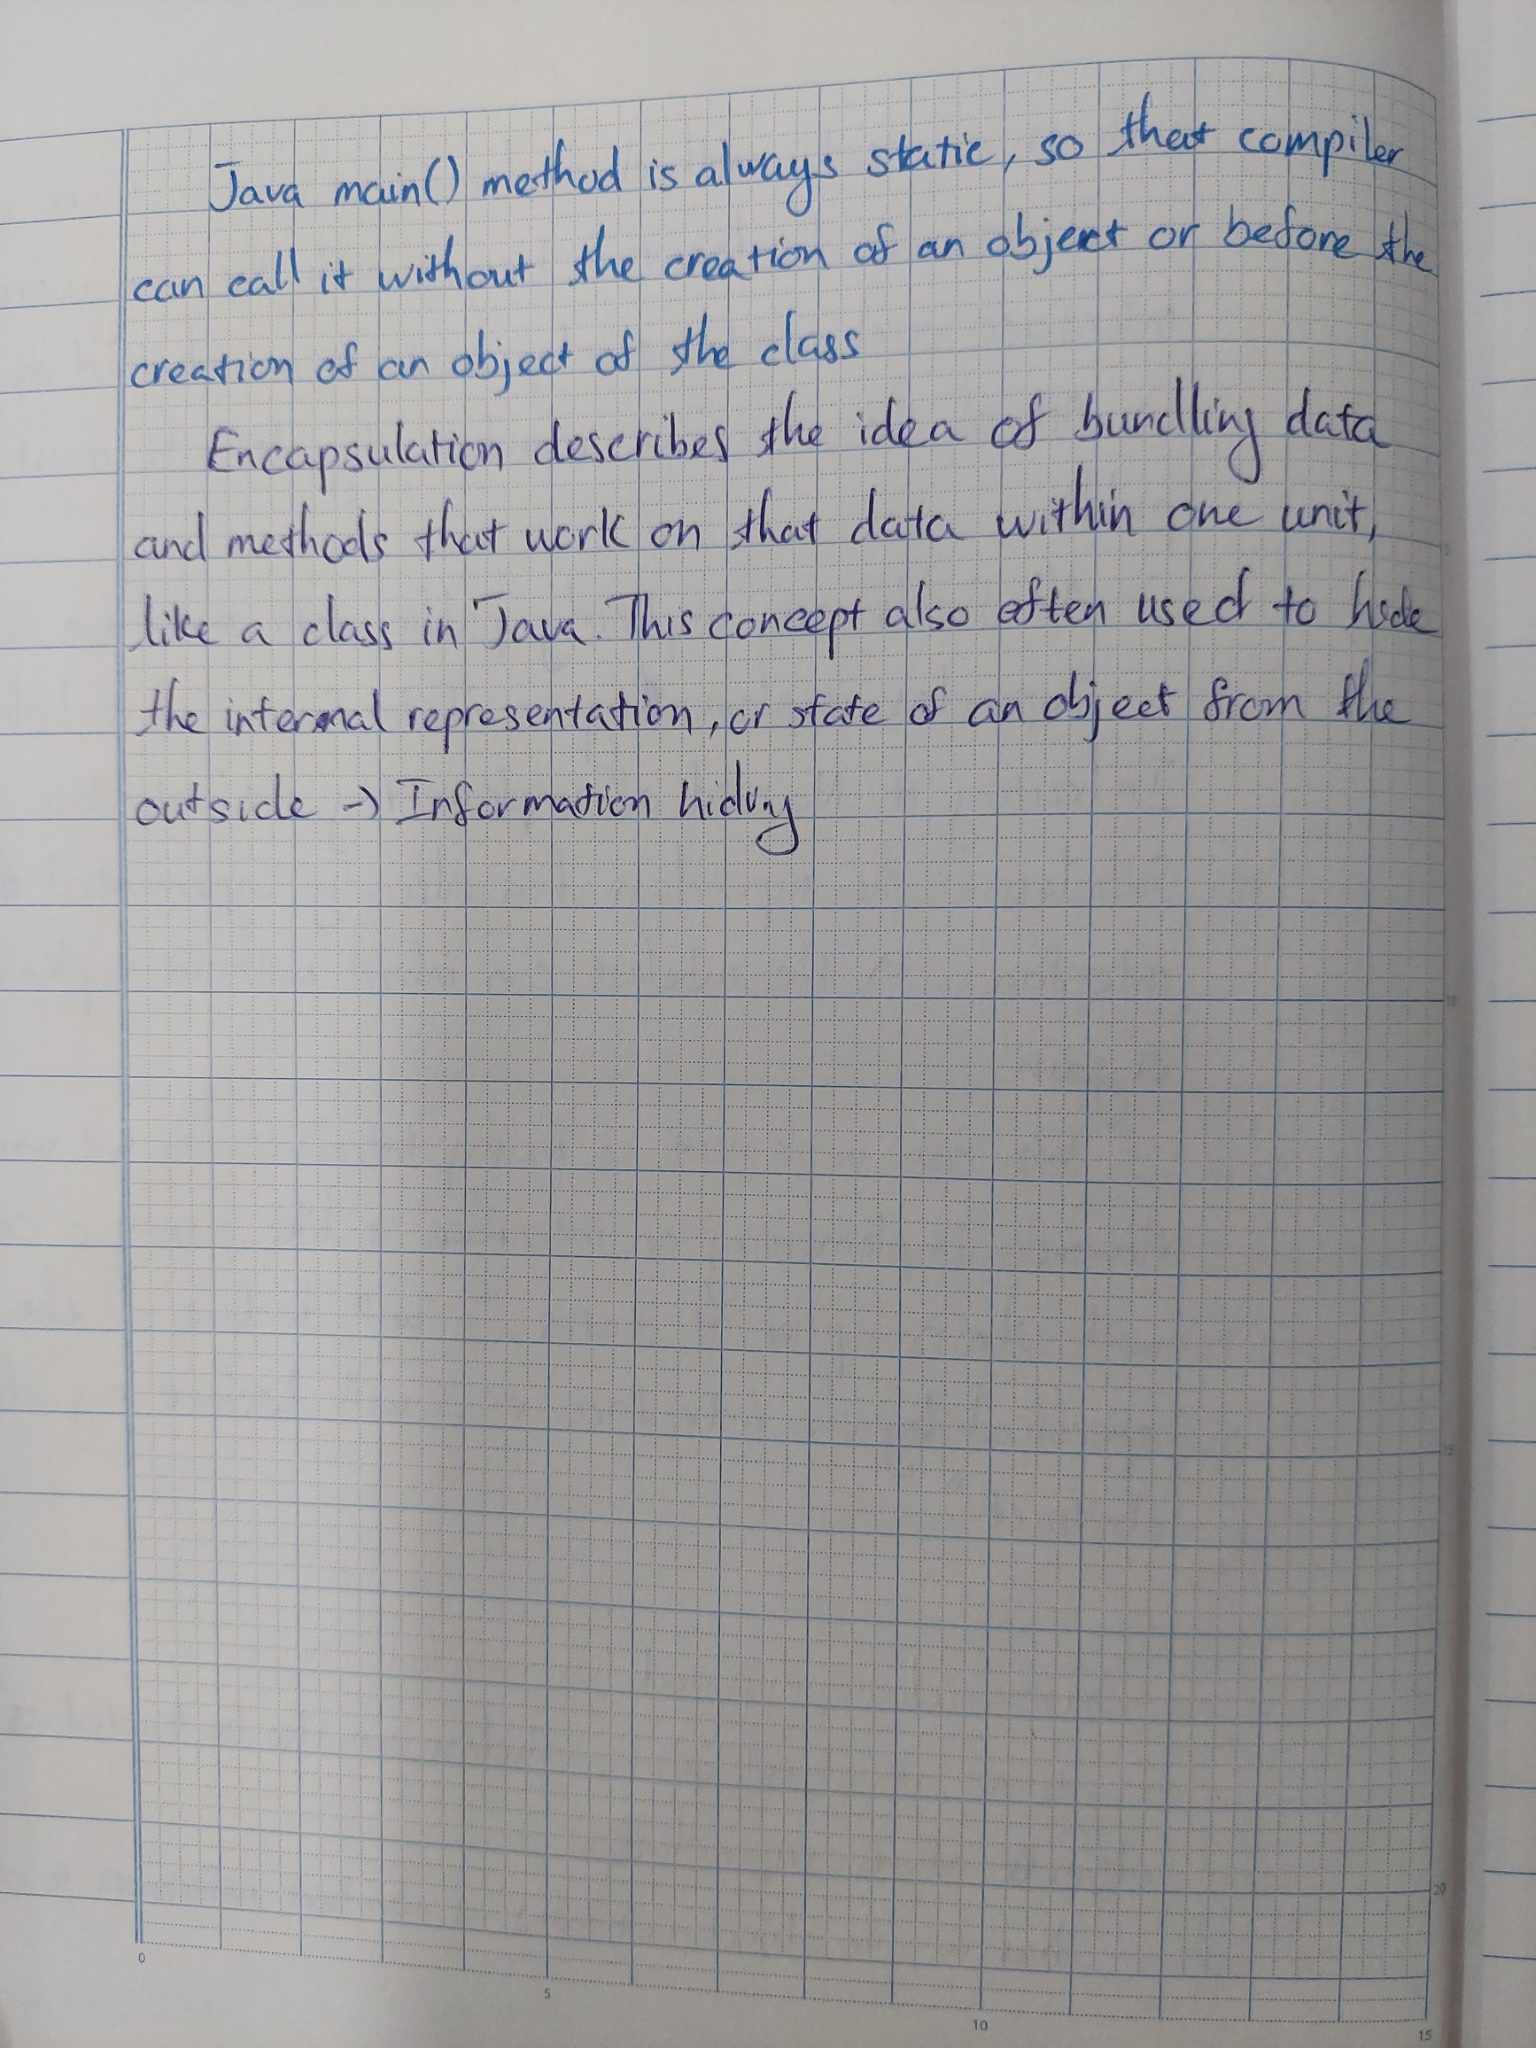 Java main() method is always static, so that compiler
can call it without the creation of an object or before the
creation of an object of the class
Encapsulation describes the idea of bundling data
and methods that work on that data within one unit,
like a class in Java. This concept also often used to hide
the internal representation, or state of an object from the
outside → Information hiding
0
5
10
15
5
10
15
20